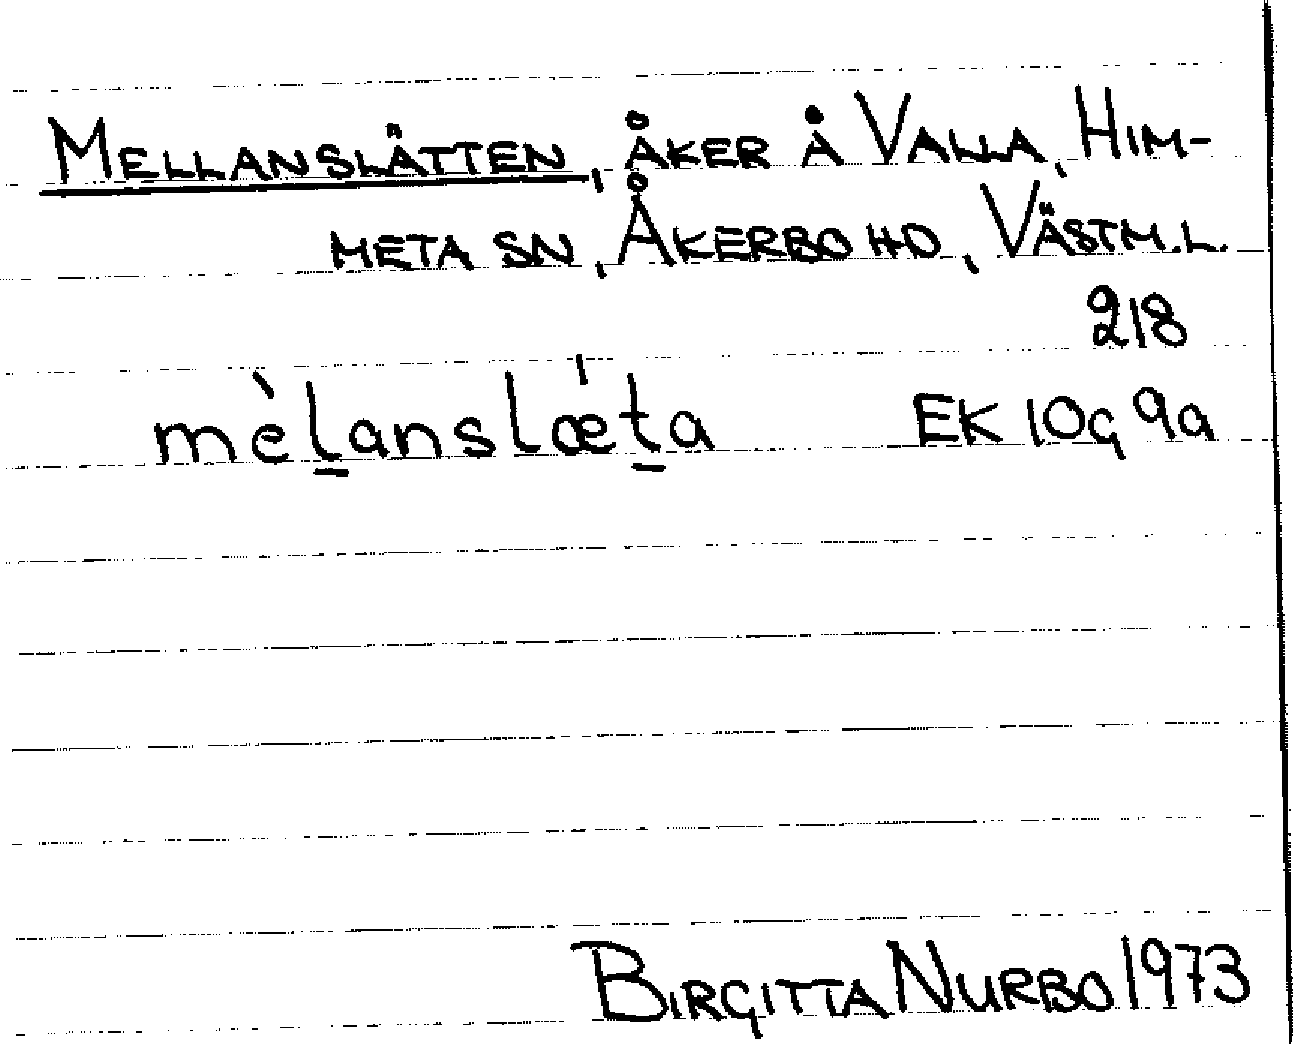 MELLANSLÄTTEN, ÅKER Å VALLA, HIM-
META SN, ÅKERBO HD, VÄSTM.L.
218
mèl̲anslæ̍t̲a EK 10g 9a
BIRGITTA NURBO 1973